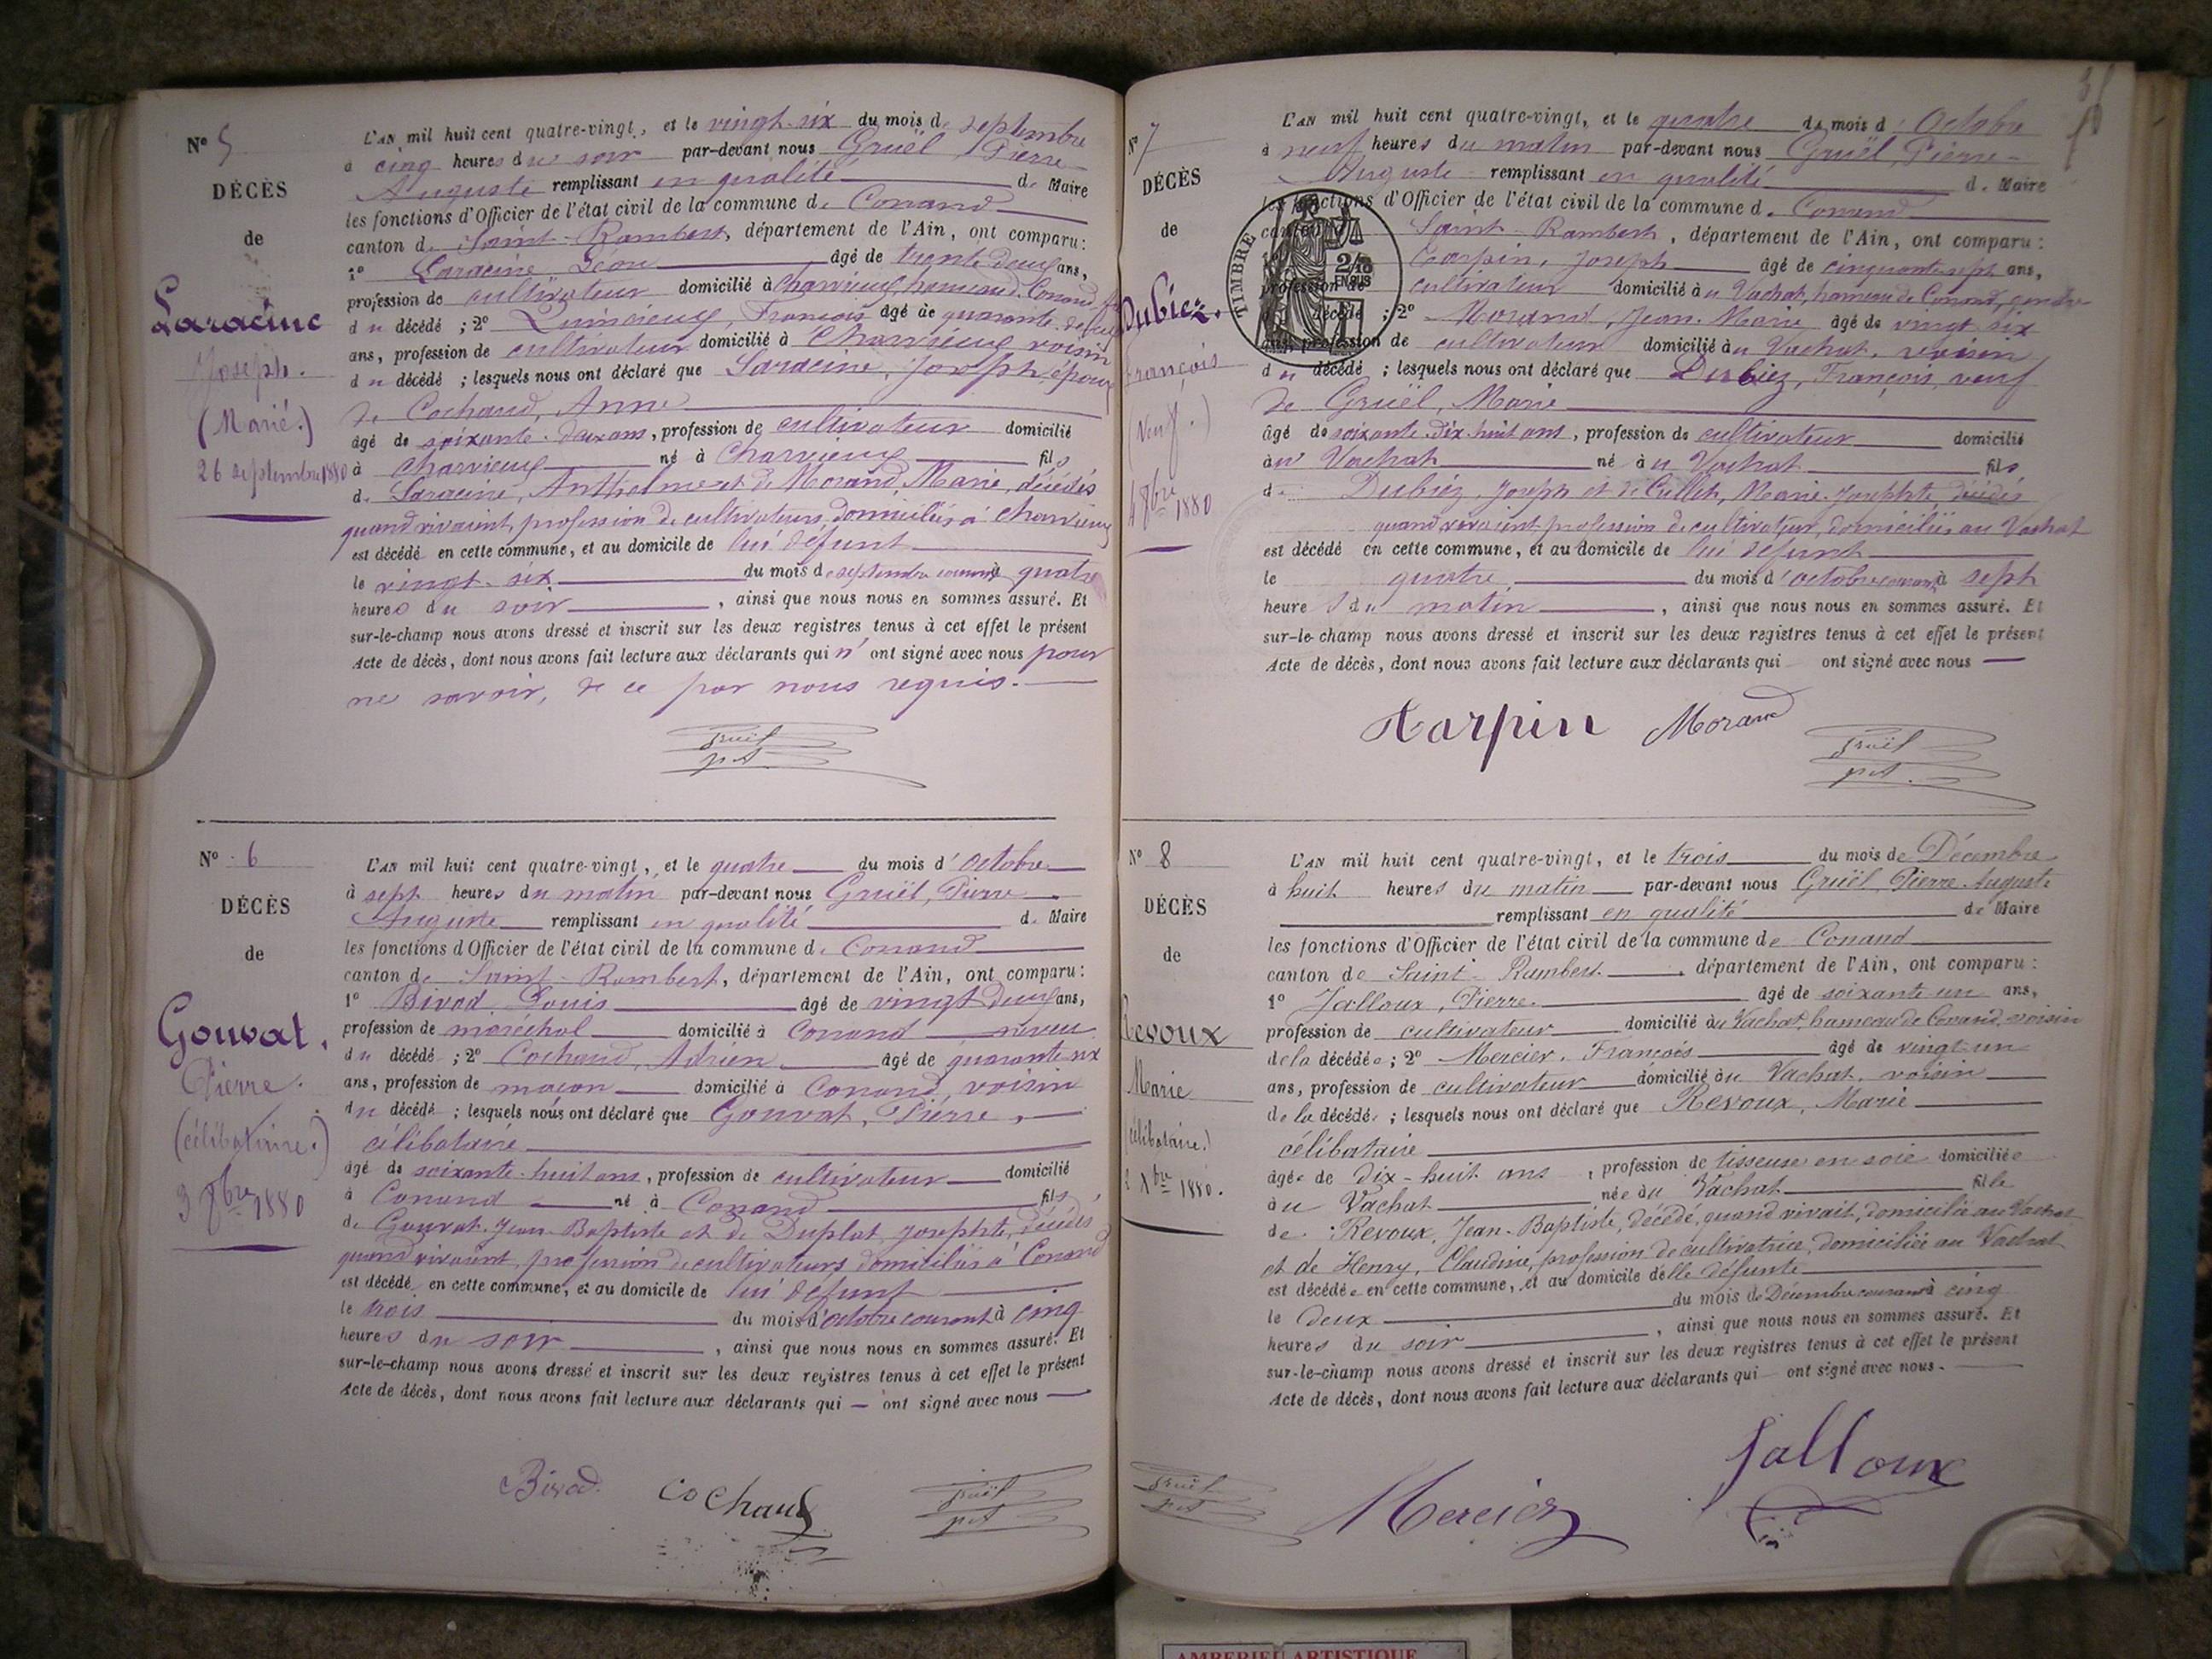 Nº 5
DÉCÈS
de
Laracine
Joseph.
(Marié.)
26 septembre 1880
L'AN mil huit cent quatre-vingt, et le vingt-six du mois de septembre
à cinq heures du soir par-devant nous Gruël, Pierre
Auguste remplissant en qualité de Maire
les fonctions d'Officier de l'état civil de la commune de Conand
canton de Saint-Rambert, département de l'Ain, ont comparu:
1º Laracine Léon âgé de trente deux ans,
profession de cultivateur domicilié à Charvieux hameau de Conand
du décédé ; 2º François âgé de quarante
ans, profession de cultivateur domicilié à Charvieux voisin
du décédé ; lesquels nous ont déclaré que Laracine, Joseph, époux
de Cochand, Anne
âgé de soixante-deux ans, profession de cultivateur domicilié
à Charvieux né à Charvieux fils
de Laracine, Anthelme et de Morand, Marie, décédés
quand vivaient, profession de cultivateurs domiciliés à Charvieux
est décédé en cette commune, et au domicile de lui défunt
le vingt-six du mois de septembre courant à quatre
heures du soir, ainsi que nous nous en sommes assuré. Et
sur-le-champ nous avons dressé et inscrit sur les deux registres tenus à cet effet le présent
Acte de décès, dont nous avons fait lecture aux déclarants qui n'ont signé avec nous pour
ne savoir, de ce par nous requis.
Gruël
p A
Nº 6
DÉCÈS
de
Gouvat,
Pierre.
(célibataire.)
3 8bre 1880
L'AN mil huit cent quatre-vingt, et le quatre du mois d'octobre
à sept heures du matin par-devant nous Gruël, Pierre
Auguste remplissant en qualité de Maire
les fonctions d'Officier de l'état civil de la commune de Conand
canton de Saint-Rambert, département de l'Ain, ont comparu:
1º Bivod Louis âgé de vingt deux ans,
profession de maréchal domicilié à Conand neveu
du décédé ; 2º Cochand, Adrien âgé de quarante six
ans, profession de maçon domicilié à Conand, voisin
du décédé ; lesquels nous ont déclaré que Gouvat, Pierre,
célibataire
âgé de soixante-huit ans, profession de cultivateur domicilié
à Conand né à Conand fils
de Gouvat Jean-Baptiste et de Duplat, Josephte, décédés
quand vivaient, profession de cultivateurs domiciliés à Conand
est décédé en cette commune, et au domicile de lui défunt
le trois du mois d'octobre courant à cinq
heures du soir, ainsi que nous nous en sommes assuré. Et
sur-le-champ nous avons dressé et inscrit sur les deux registres tenus à cet effet le présent
Acte de décès, dont nous avons fait lecture aux déclarants qui — ont signé avec nous
Bivod. Cochaud Gruël
p A
Nº 7
DÉCÈS
de
Dubiez.
François
(Veuf.)
4 8bre 1880
TIMBRE
2/10
EN SUS
L'AN mil huit cent quatre-vingt, et le quatre du mois d'Octobre
à neuf heures du matin par-devant nous Gruël, Pierre-
Auguste remplissant en qualité de Maire
les fonctions d'Officier de l'état civil de la commune de Conand
canton d Saint-Rambert, département de l'Ain, ont comparu:
Carpin, Joseph âgé de cinquante sept ans,
profession de cultivateur domicilié au Vachat, hameau de Conand, gendre
décédé ; 2º Morand, Jean-Marie âgé de vingt six
ans, profession de cultivateur domicilié au Vachat, voisin
du décédé ; lesquels nous ont déclaré que Dubiez, François, veuf
de Gruël, Marie
âgé de soixante-dix-huit ans, profession de cultivateur domicilié
au Vachat né au Vachat fils
de Dubiez, Joseph et de Cullet, Marie-Josephte, décédés
quand vivaient profession de cultivateur, domiciliés au Vachat
est décédé en cette commune, et au domicile de lui défunt
le quatre du mois d'octobre courant à sept
heures du matin, ainsi que nous nous en sommes assuré. Et
sur-le-champ nous avons dressé et inscrit sur les deux registres tenus à cet effet le présent
Acte de décès, dont nous avons fait lecture aux déclarants qui ont signé avec nous —
Karpin Morand Gruël
p A.
Nº 8
DÉCÈS
de
Revoux
Marie
(célibataire.)
2 Xbre 1880.
L'AN mil huit cent quatre-vingt, et le trois du mois de Décembre
à huit heures du matin par-devant nous Gruël, Pierre Auguste
remplissant en qualité de Maire
les fonctions d'Officier de l'état civil de la commune de Conand
canton de Saint-Rambert, département de l'Ain, ont comparu:
1º Jalloux, Pierre âgé de soixante un ans,
profession de cultivateur domicilié au Vachat, hameau de Conand, voisin
de la décédée ; 2º Mercier, François âgé de vingt-un
ans, profession de cultivateur domicilié au Vachat, voisin
de la décédée ; lesquels nous ont déclaré que Revoux, Marie
célibataire
âgée de dix-huit ans, profession de tisseuse en soie domiciliée
au Vachat née au Vachat fille
de Revoux, Jean-Baptiste, décédé, quand vivait, domicilié au Vachat
et de Henry, Claudine, profession de cultivatrice, domiciliée au Vachat
est décédée en cette commune, et au domicile d'elle défunte
le deux du mois de Décembre courant à cinq
heures du soir, ainsi que nous nous en sommes assuré. Et
sur-le-champ nous avons dressé et inscrit sur les deux registres tenus à cet effet le présent
Acte de décès, dont nous avons fait lecture aux déclarants qui — ont signé avec nous.
Gruël
p A Mercier Jalloux
AMBERIEU ARTISTIQUE